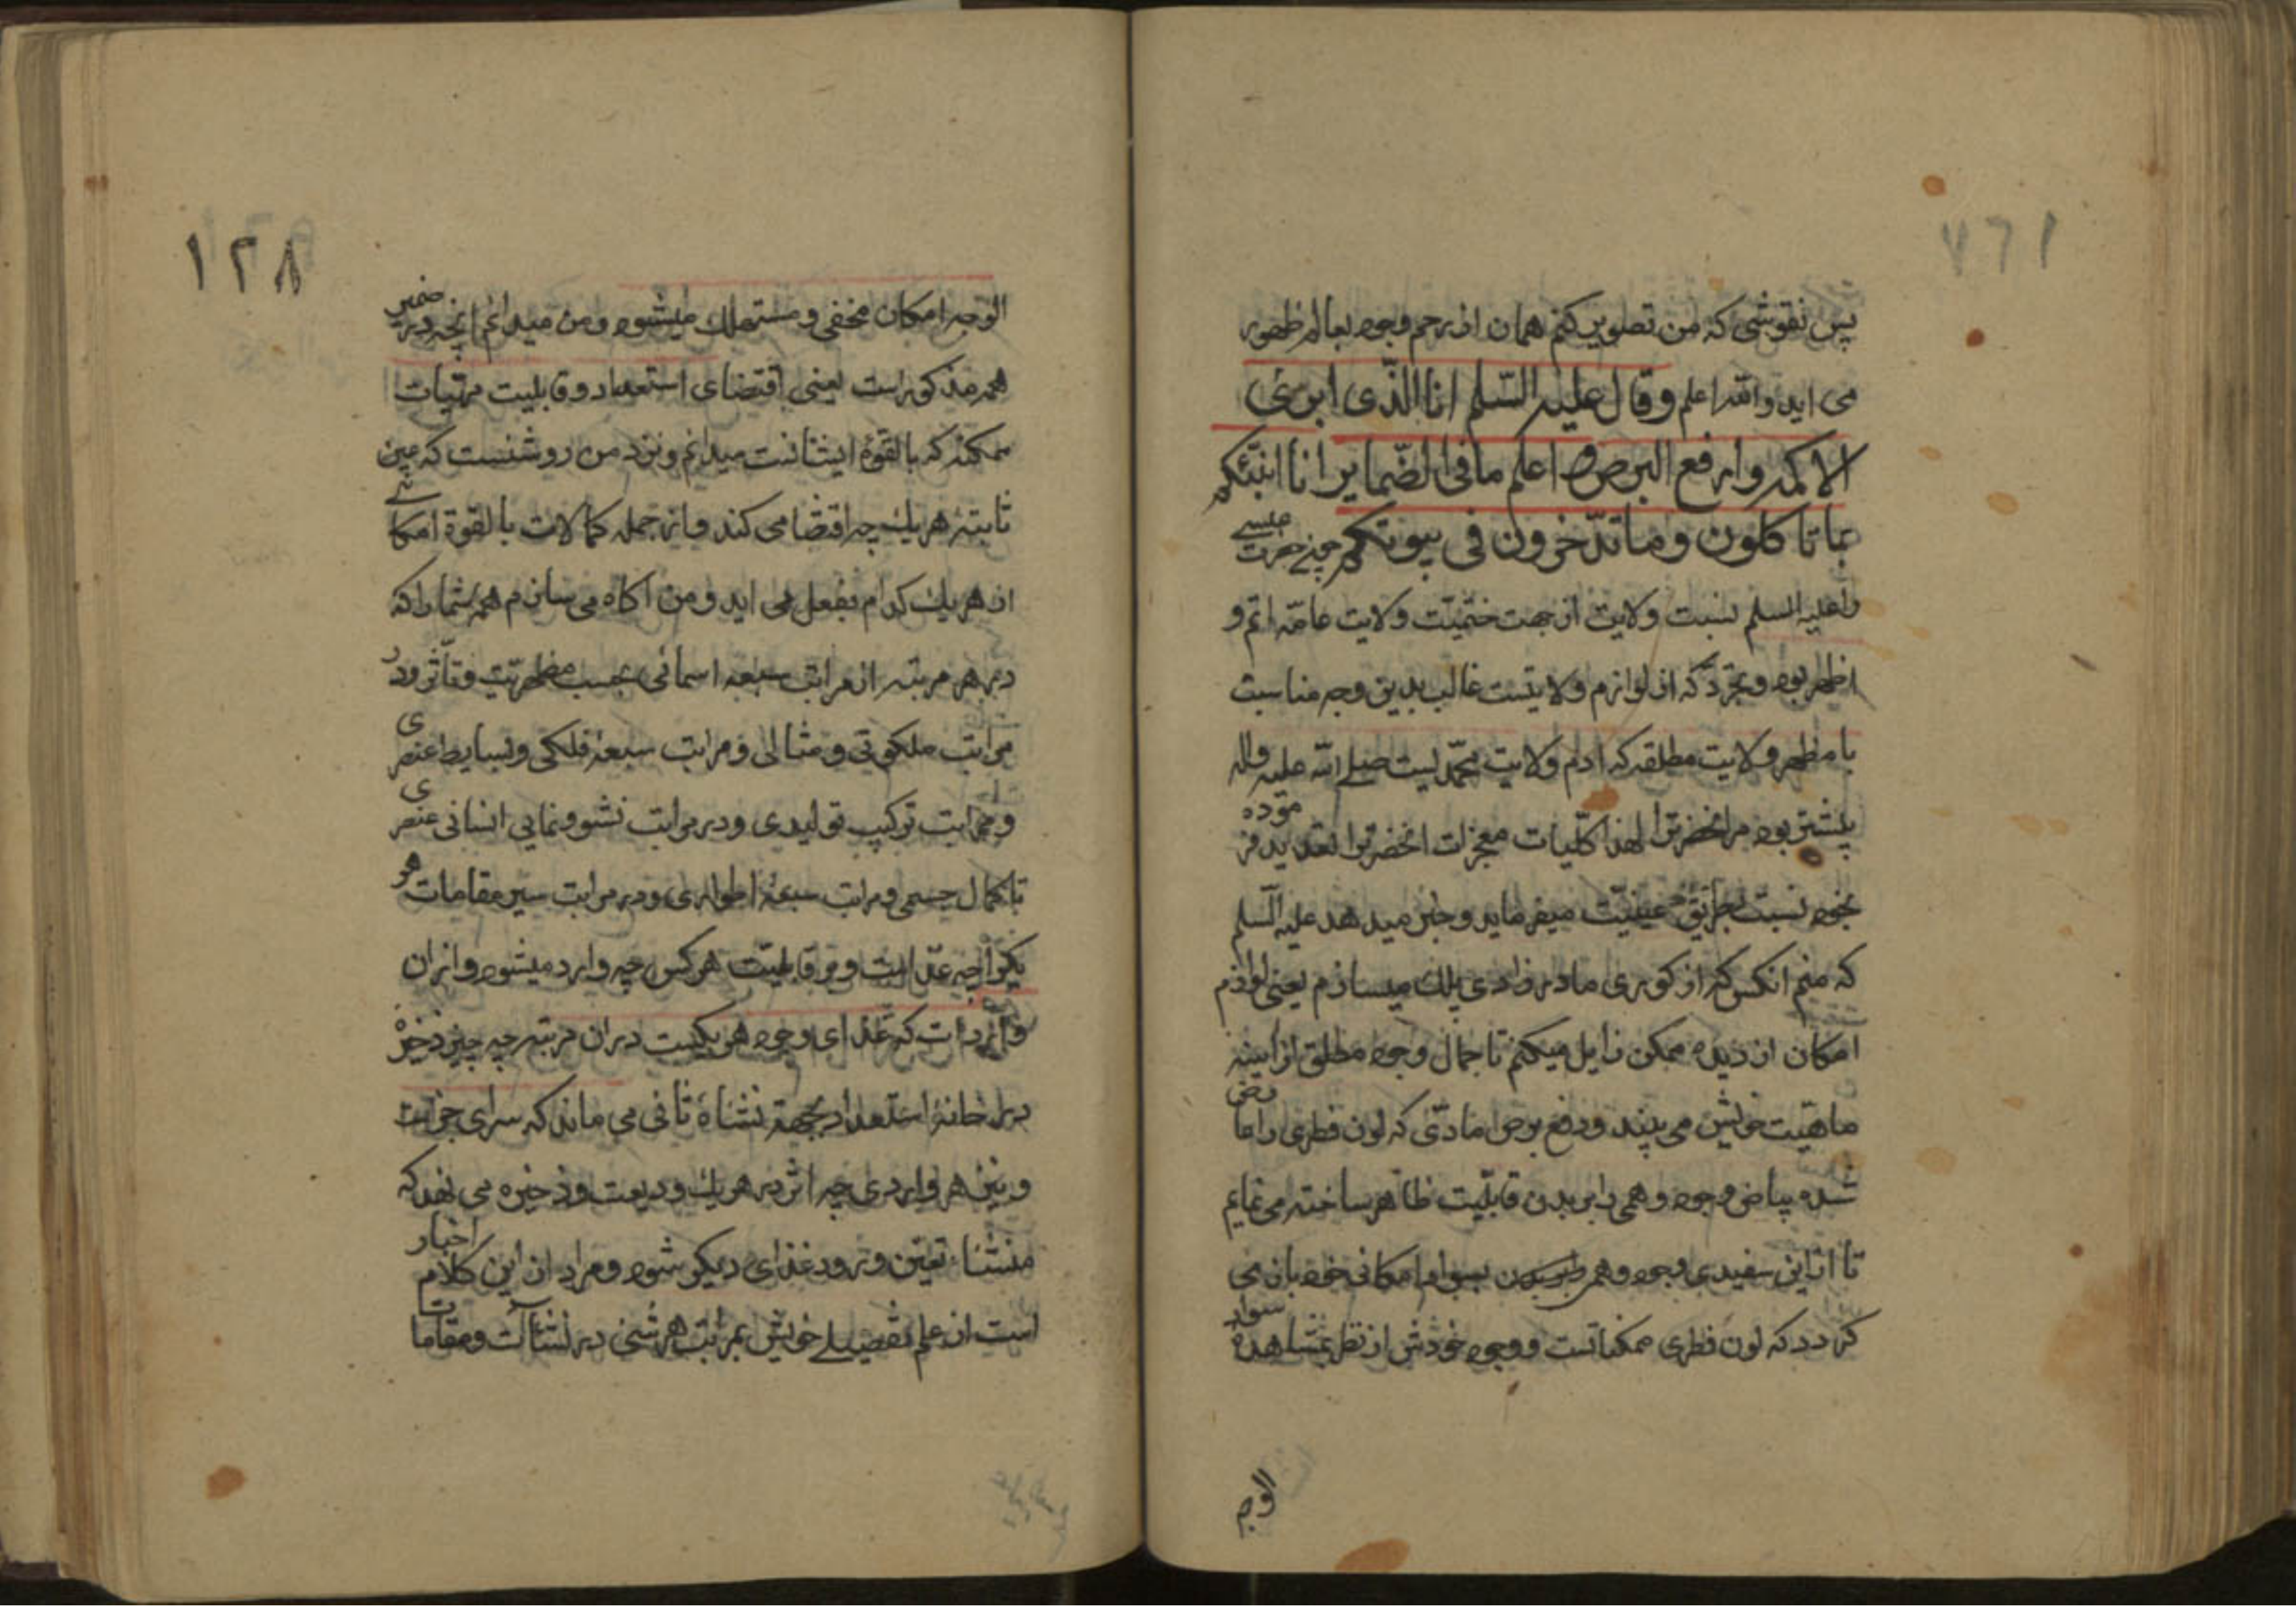 پس نقوشی که من تصویر کنم همان از رحم وجود بعالم ظهور
می اید والله اعلم وقال علیه السّلم انا الّذی ابرئ
الاکمه وارفع البرص و اعلم ما فی الضّمایر انا انبّئکم
بما تاکلون و ما تدّخرون فی بیوتکم چون حضرت عیسی
را علیه السلم نسبت ولایت از جهت ختمیّت ولایت عامّه اتم و
اظهر بود و تجرّد که از لوازم ولایتست غالب بدین وجه مناسبت
با مظهر ولایت مطلقه که ادم ولایت محمّدیست صلی الله علیه واله
بیشتر بود مر انحضرترا لهذا کلّیات معجزات انحضرترا تعدید فرموده
بخود نسبت بطریق عینیّت میفرماید و خبر میدهد علیه السّلم
که منم انکس که از کوری مادر زادی پاک میسازم یعنی لوازم
امکان از دیده ممکن زایل میکنم تا جمال وجود مطلق از اینه
ماهیّت خویش می بیند و دفع برص مادّی که لون فطری را عارض
شده بیاض وجود وهمی را بر بدن قابلیّت ظاهر ساخته می نمایم
تا از این سفیدی وجود وهمی بسواد امکانی خود باز می
کردد که لون فطری ممکناتست و وجود خودش از نظر بمشاهده سواد
الوجه
١٢٨
الوجه امکان مخفی و مستهلک میشود و من میدانم انچه در ضمیر
همه مذکور است یعنی اقتضای استعداد و قابلیت مهیّات
ممکنه که بالقوّهٔ ایشانست میدانم و نزد من روشنست که عین
ثابتهٔ هر یک چه اقتضا می کند و از جمله کمالات بالقوة امکانی
از هر یک کدام بفعل می اید و من اکاه می سازم همه شما را که
در هر مرتبه از مراتب سبعه اسمائی بحسب مظهریّت و تاثّر و در
مراتب ملکوتی و مثالی و مراتب سبعهٔ فلکی و بسایط عنصری
و مراتب ترکیب تولیدی و در مراتب نشو و نمایی انسانی عنصری
تا کمال جسمی و مراتب سبعهٔ اطواری و در مراتب سیر مقامات هر
یک را چه غذاست و بر قابلیّت هر کس چه وارد میشود و از ان
واردات که غذای وجود هر یکیست در ان مرتبه چه چیز ذخیرهٔ
در خانهٔ استعداد بجهة نشاة ثانی می ماند که سرای جزاست
و نیز هر واردی چه اثر در هر یک ودیعت و ذخیره می نهد که
منشاء تعیّن و ورود غذای دیکر شود و مراد از این کلام اخبار
است از علم تفصیلی خویش بمراتب هر شئ در نشآت و مقامات